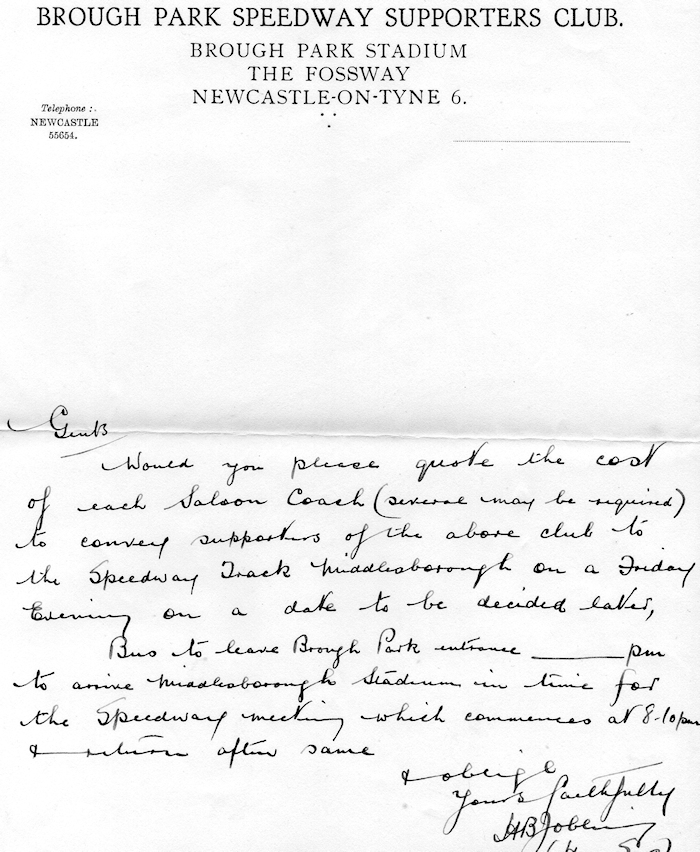 BROUGH PARK SPEEDWAY SUPPORTERS CLUB.
BROUGH PARK STADIUM
THE FOSSWAY
NEWCASTLE-ON-TYNE 6.
Telephone :-
NEWCASTLE
55654.
Gents
Would you please quote the cost
of each Saloon Coach (several may be required)
to convey supporters of the above club to
the Speedway Track Middlesborough on a Friday
Evening on a date to be decided later,
Bus to leave Brough Park entrance ______ pm
to arrive Middlesborough Stadium in time for
the Speedway meeting which commences at 8-10pm
& return after same
& oblige
Yours faithfully
HB Jobling